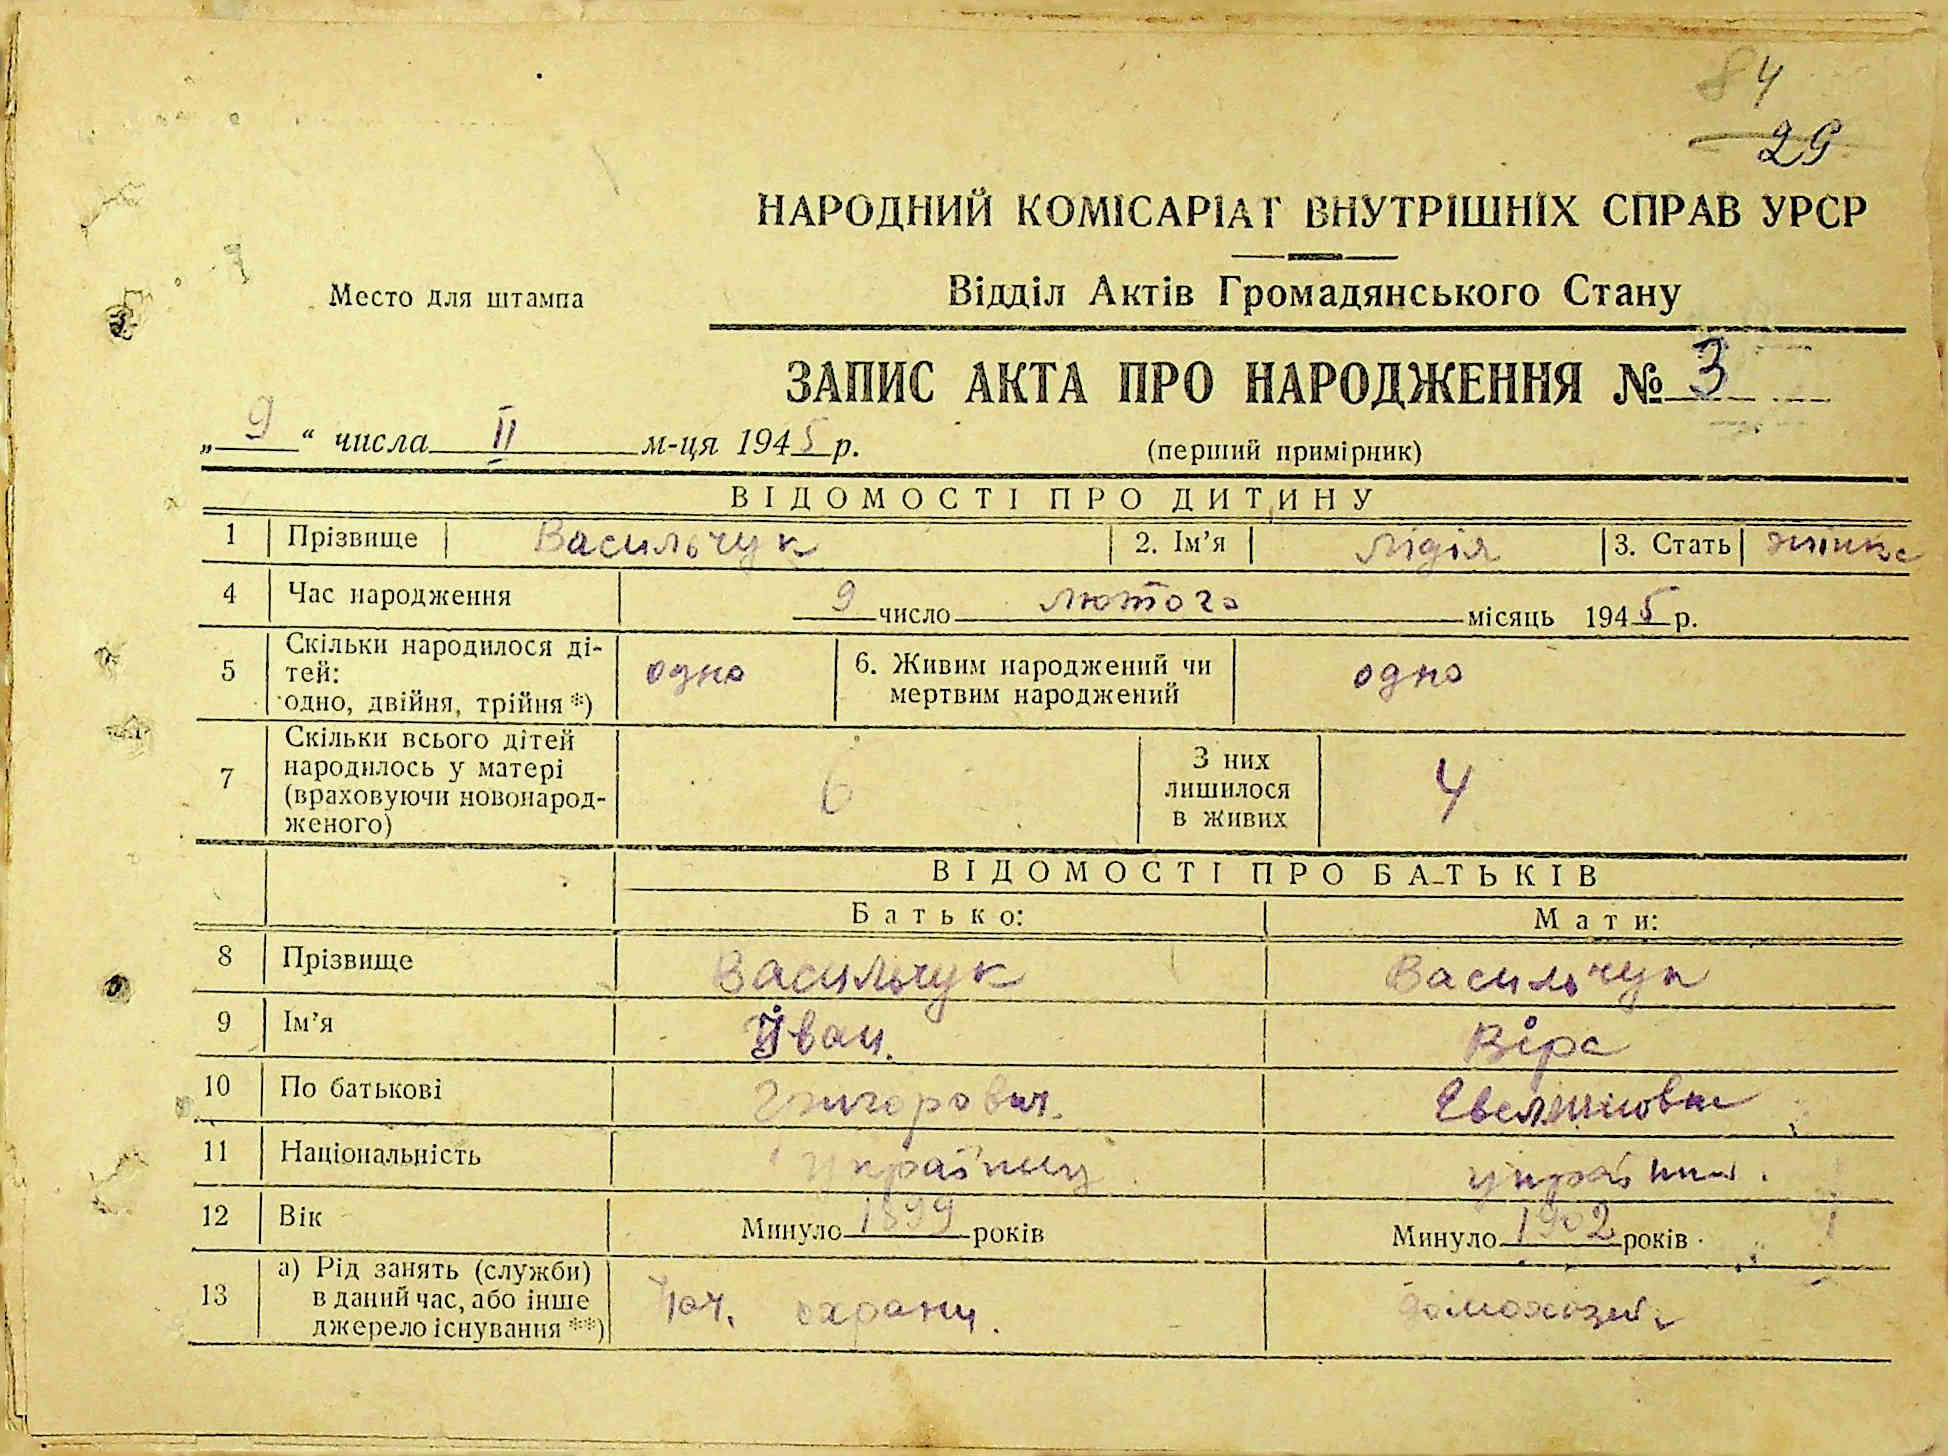 84
29
НАРОДНИЙ КОМІСАРІАТ ВНУТРІШНІХ СПРАВ УРСР
Место для штампа
Відділ Актів Громадянського Стану
ЗАПИС АКТА ПРО НАРОДЖЕННЯ № 3
„ 9 “ числа II м-ця 1945 р.
(перший примірник)
ВІДОМОСТІ ПРО ДИТИНУ
1 Прізвище Васильчук 2. Ім’я Лідія 3. Стать жінка
4 Час народження 9 число лютого місяць 1945 р.
5 Скільки народилося ді-
тей:
одно, двійня, трійня *) одно 6. Живим народжений чи
мертвим народжений одно
7 Скільки всього дітей
народилось у матері
(враховуючи новонарод-
женого) 6 З них
лишилося
в живих 4
ВІДОМОСТІ ПРО БАТЬКІВ
Батько: Мати:
8 Прізвище Васильчук Васильчук
9 Ім’я Іван. Віра
10 По батькові Григорович.
11 Національність Українец україн.
12 Вік Минуло 1899 років Минуло 1902 років
13 а) Рід занять (службы)
в даний час, або інше
джерело існування **) Нач. охрани. домохозяй